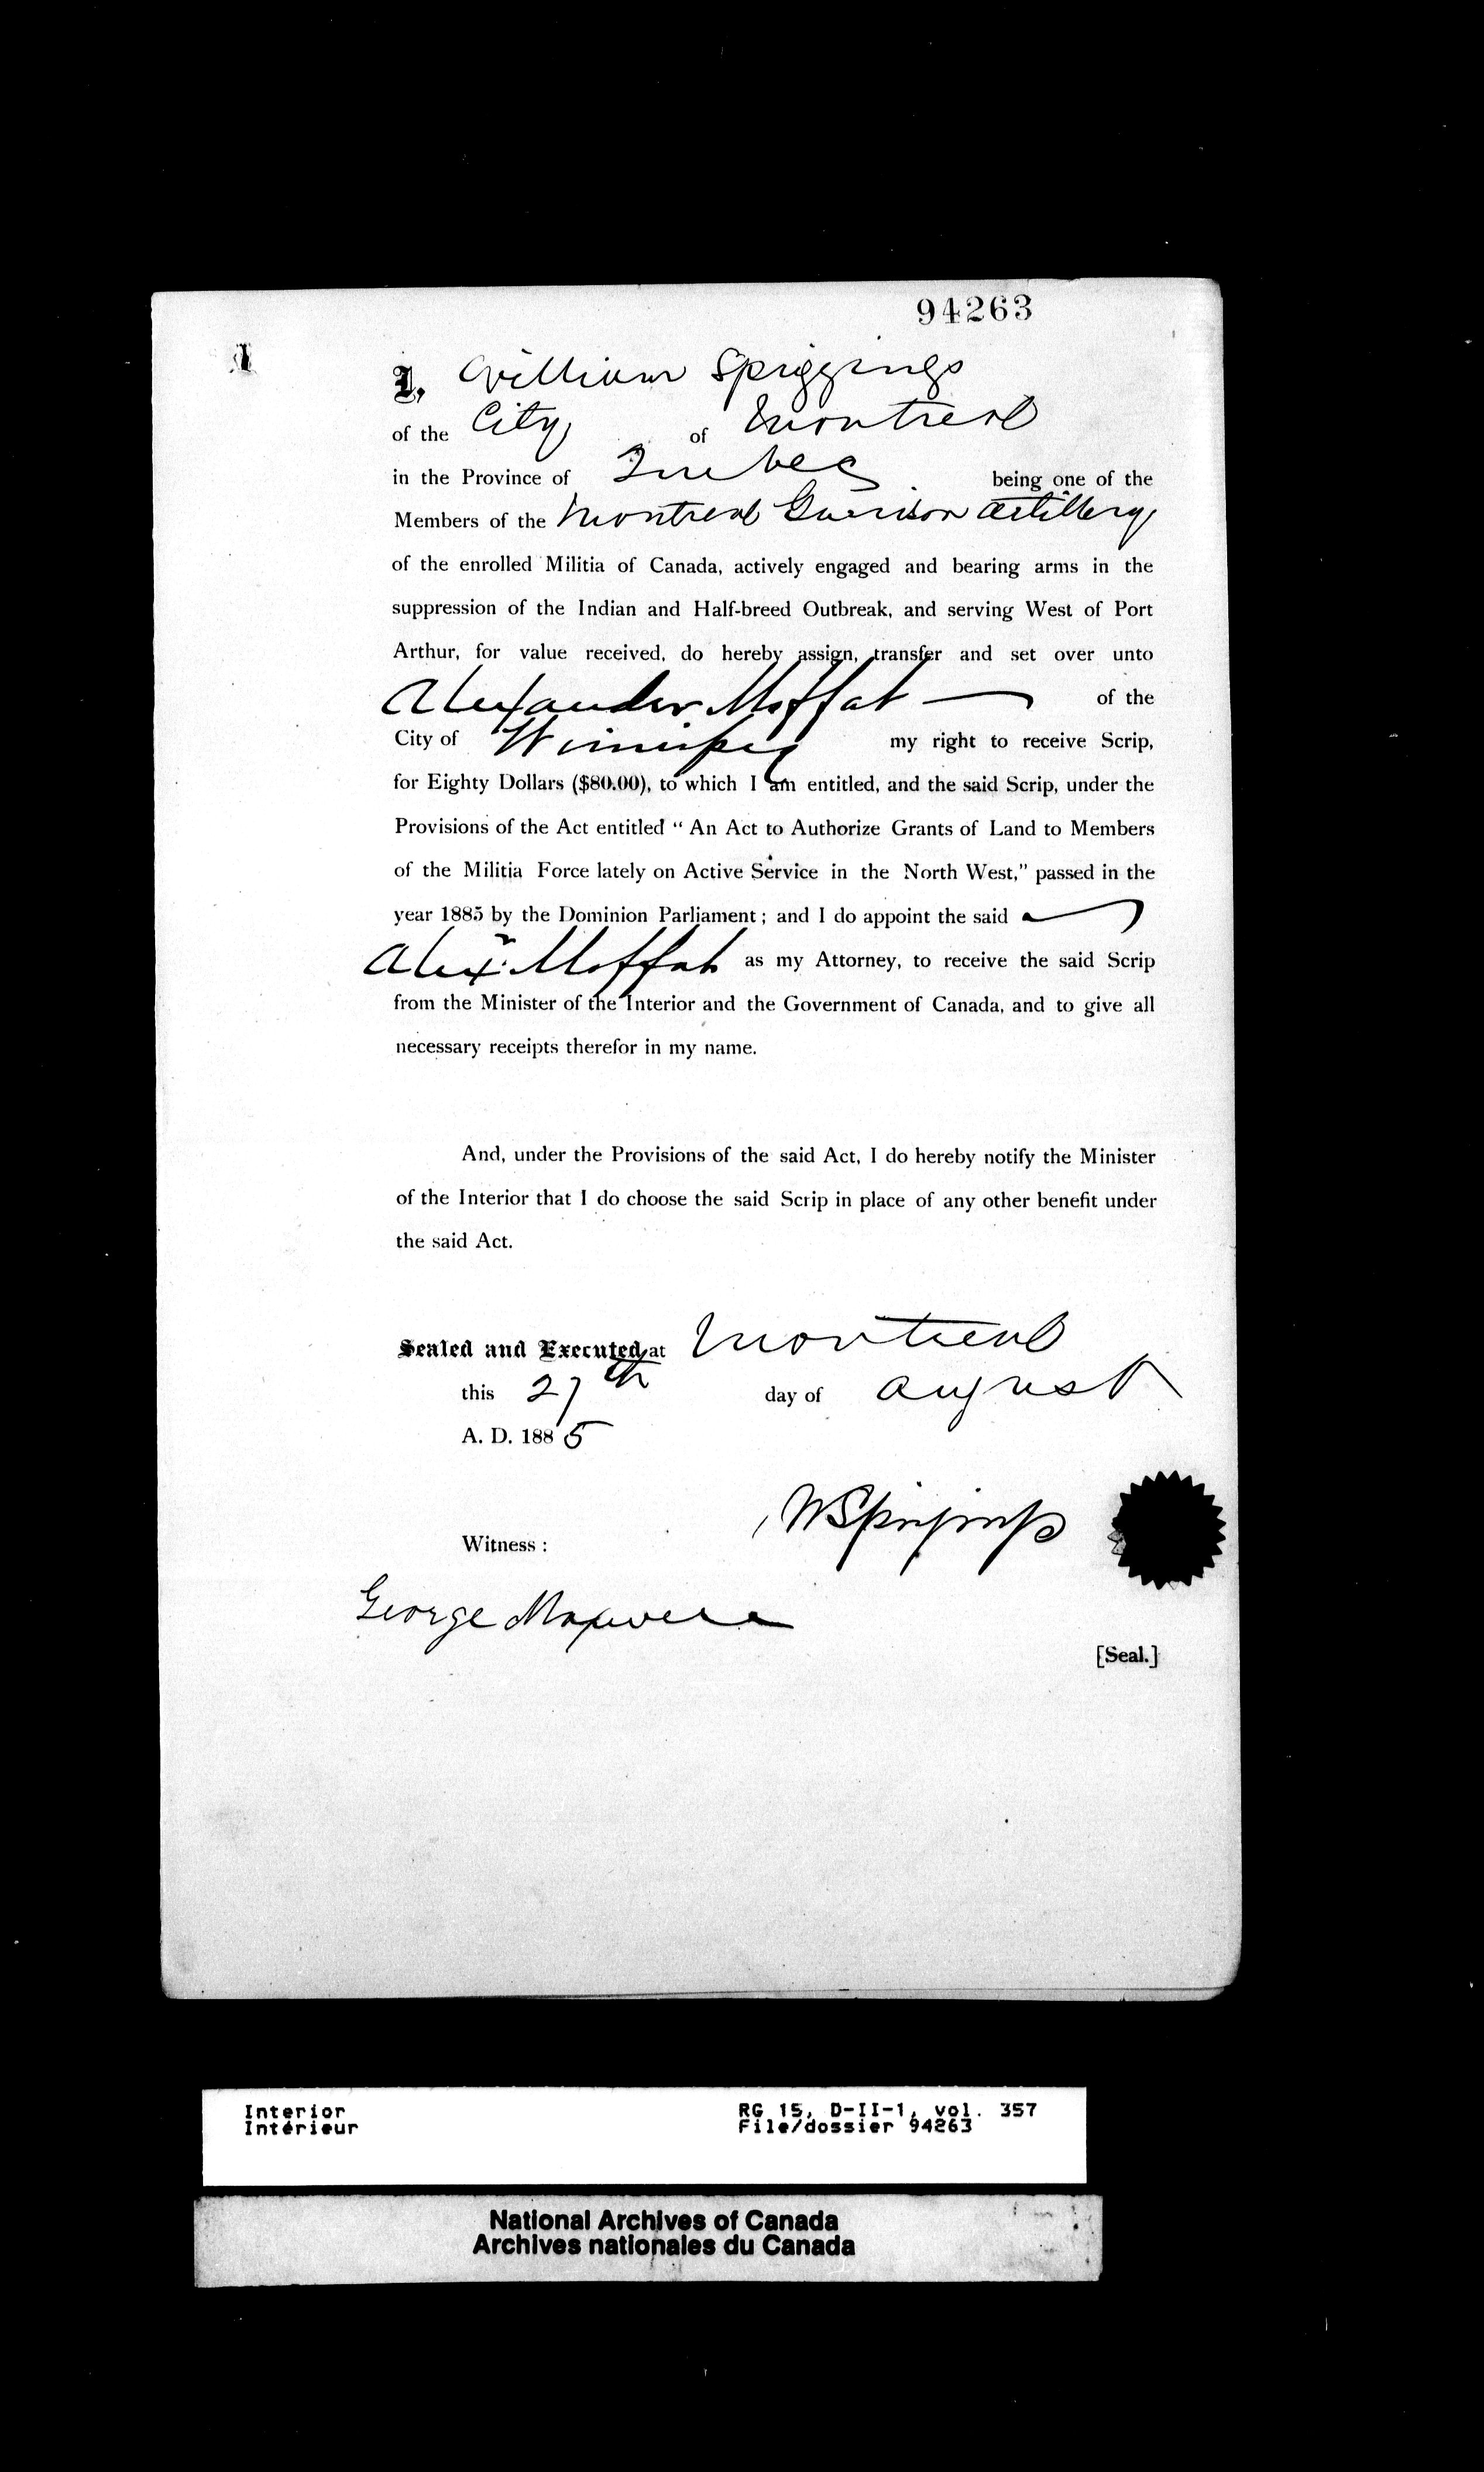 94263
I, William Spriggings
of the City of Montreal
in the Province of Quebec being one of the
Members of the Montreal Garrison Artillery
of the enrolled Militia of Canada, actively engaged and bearing arms in the
suppression of the Indian and Half-breed Outbreak, and serving West of Port
Arthur, for value received, do hereby assign, transfer and set over unto
Alexander Moffat — of the
City of Winnipeg my right to receive Scrip,
for Eighty Dollars ($80.00), to which I am entitled, and the said Scrip, under the
Provisions of the Act entitled “ An Act to Authorize Grants of Land to Members
of the Militia Force lately on Active Service in the North West,” passed in the
year 1885 by the Dominion Parliament ; and I do appoint the said
Alexr Moffat as my Attorney, to receive the said Scrip
from the Minister of the Interior and the Government of Canada, and to give all
necessary receipts therefor in my name.
And, under the Provisions of the said Act, I do hereby notify the Minister
of the Interior that I do choose the said Scrip in place of any other benefit under
the said Act.
Sealed and Executed at Montreal
this 27th day of August
A. D. 1885
Witness :
George Maxwell
[Seal.]
Interior RG 15, D-II-1, vol. 357
Intérieur File/dossier 94263
National Archives of Canada
Archives nationales du Canada